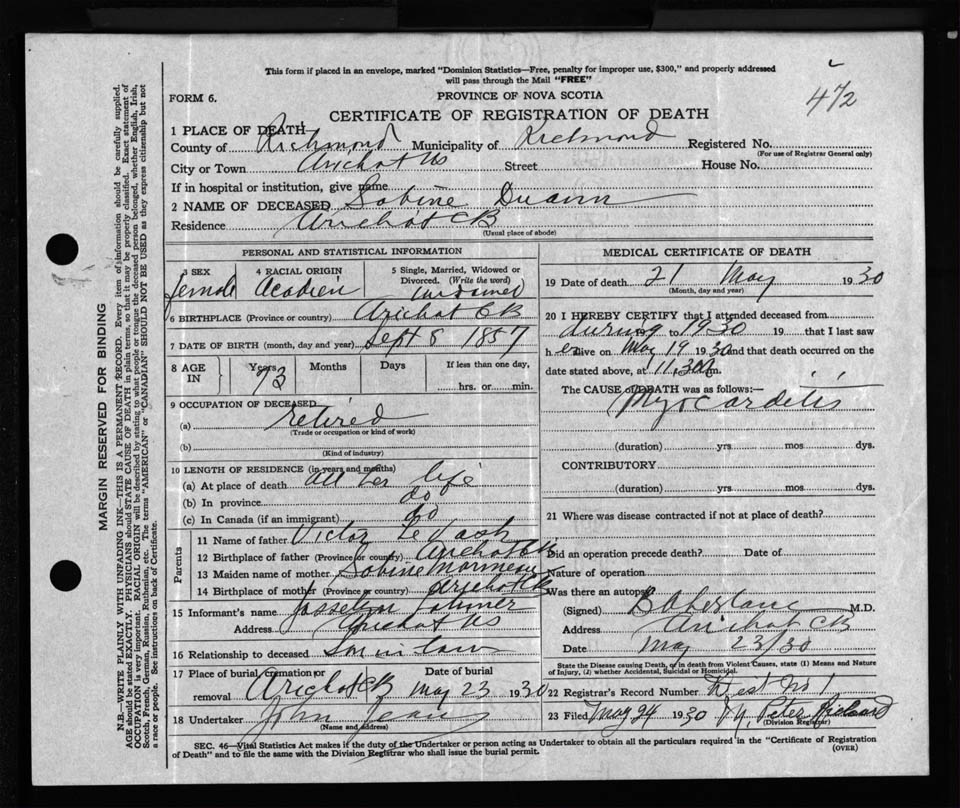 This form if placed in an envelope, marked "Dominion Statistics—Free, penalty for improper use, $300," and properly addressed
will pass through the Mail "FREE"
472
FORM 6.
PROVINCE OF NOVA SCOTIA
CERTIFICATE OF REGISTRATION OF DEATH
1 PLACE OF DEATH
County of Richmond Municipality of Richmond Registered No.
(For use of Registrar General only)
City or Town Arichat NS Street House No.
If in hospital or institution, give name
2 NAME OF DECEASED Sabine
Residence Arichat CB
(Usual place of abode)
PERSONAL AND STATISTICAL INFORMATION
3 SEX 4 RACIAL ORIGIN 5 Single, Married, Widowed or
Divorced. (Write the word)
female Acadien widowed
6 BIRTHPLACE (Province or country) Arichat CB
7 DATE OF BIRTH (month, day and year) Sept 8 1857
8 AGE IN Years Months Days If less than one day,
73 hrs. or min.
9 OCCUPATION OF DECEASED
(a) retired
(Trade or occupation or kind of work)
(b)
(Kind of industry)
10 LENGTH OF RESIDENCE (in years and months)
(a) At place of death all her life
(b) In province do
(c) In Canada (if an immigrant) do
Parents
11 Name of father Victor
12 Birthplace of father (Province or country) Arichat CB
13 Maiden name of mother Sabine
14 Birthplace of mother (Province or country) Arichat CB
15 Informant's name
Address Arichat NS
16 Relationship to deceased Son in law
17 Place of burial, cremation or removal Arichat CB Date of burial May 23 1930
18 Undertaker John
(Name and address)
MEDICAL CERTIFICATE OF DEATH
19 Date of death 21 May 1930
(Month, day and year)
20 I HEREBY CERTIFY that I attended deceased from
during to 1930 19 that I last saw
her alive on May 19 1930 and that death occurred on the
date stated above, at 11,30 m.
The CAUSE of DEATH was as follows:—
Myocarditis
(duration) yrs mos dys.
CONTRIBUTORY
(duration) yrs. mos. dys.
21 Where was disease contracted if not at place of death?
Did an operation precede death? Date of
Nature of operation
Was there an autopsy
(Signed) M.D.
Address Arichat CB
Date May 23/30
State the Disease causing Death, or in death from Violent Causes, state (1) Means and Nature
of Injury, (2) whether Accidental, Suicidal or Homicidal.
22 Registrar's Record Number Dist No 1
23 Filed May 24 1930 Peter
(Division Registrar)
SEC. 46—Vital Statistics Act makes it the duty of the Undertaker or person acting as Undertaker to obtain all the particulars required in the "Certificate of Registration
of Death" and to file the same with the Division Registrar who shall issue the burial permit. (OVER)
MARGIN RESERVED FOR BINDING
N.B.—WRITE PLAINLY WITH UNFADING INK—THIS IS A PERMANENT RECORD. Every item of information should be carefully supplied.
AGE should be stated EXACTLY. PHYSICIANS should STATE CAUSE OF DEATH in plain terms, so that it may be properly classified. Exact statement of
OCCUPATION is very important. RACIAL ORIGIN will be described by stating to what people or tongue the deceased person belonged, whether English, Irish,
Scotch, French, German, Russian, Ruthenian, etc. The terms "AMERICAN" or "CANADIAN" SHOULD NOT BE USED as they express citizenship but not
a race or people. See instructions on back of Certificate.